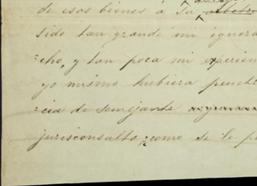 de esos bienes a su
sido tan grande mi ignora
cho, y tan poca mi experien
yo mismo hubiera penetr
cia de semejante
jurisconsulto, como se le p